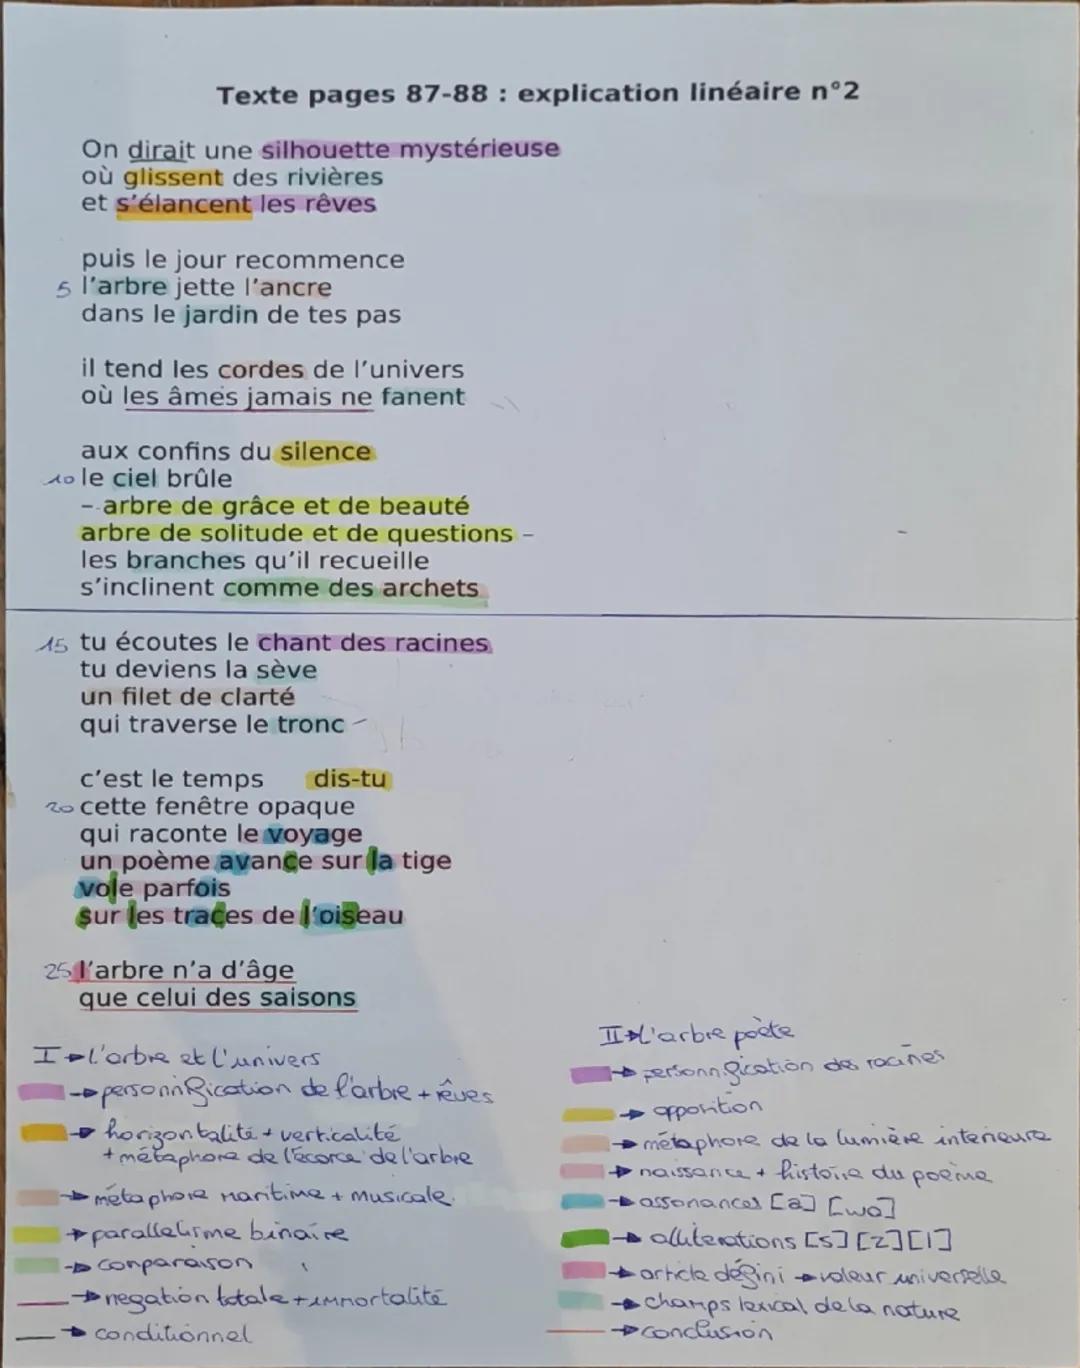 Texte pages 87-88 : explication linéaire n°2
On dirait une silhouette mystérieuse
où glissent des rivières
et s'élancent les rêves
puis le jour recommence
5 l'arbre jette l'ancre
dans le jardin de tes pas
il tend les cordes de l'univers
où les âmes jamais ne fanent
aux confins du silence
10 le ciel brûle
– arbre de grâce et de beauté
arbre de solitude et de questions –
les branches qu'il recueille
s'inclinent comme des archets
15 tu écoutes le chant des racines
tu deviens la sève
un filet de clarté
qui traverse le tronc
c'est le temps dis-tu
20 cette fenêtre opaque
qui raconte le voyage
un poème avance sur la tige
vole parfois
sur les traces de l'oiseau
25 l'arbre n'a d'âge
que celui des saisons
I → l'arbre et l'univers
→ personnification de l'arbre + rêves
→ horizontalité + verticalité
+ métaphore de l'écorce de l'arbre
→ métaphore maritime + musicale
→ parallélisme binaire
→ comparaison
→ negation totale + immortalité
→ conditionnel
II → L'arbre poète
→ personnification des racines
→ opposition
→ métaphore de la lumière interieure
→ naissance + histoire du poème
→ assonances [a] [wa]
→ alliterations [s] [z] [l]
→ article défini → valeur universelle
→ champs lexical de la nature
→ conclusion